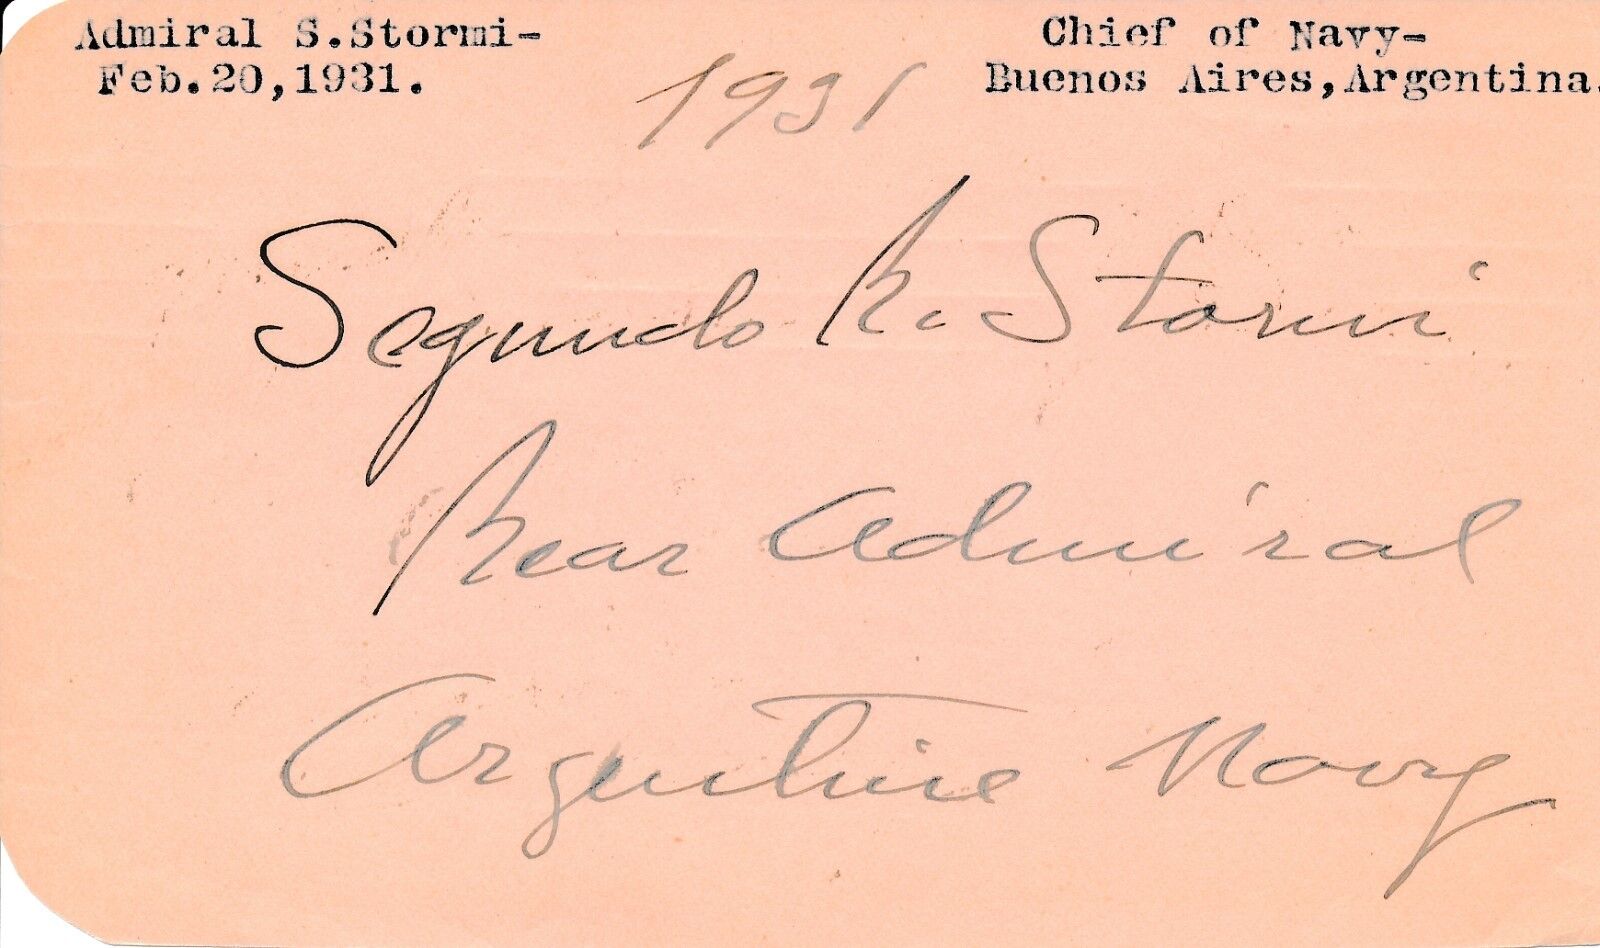 Admiral S.Stormi-
Feb.20,1931.
Chief of Navy-
Buenos Aires,Argentina.
1931
Segundo R. Storni
Rear Admiral
Argentine Navy